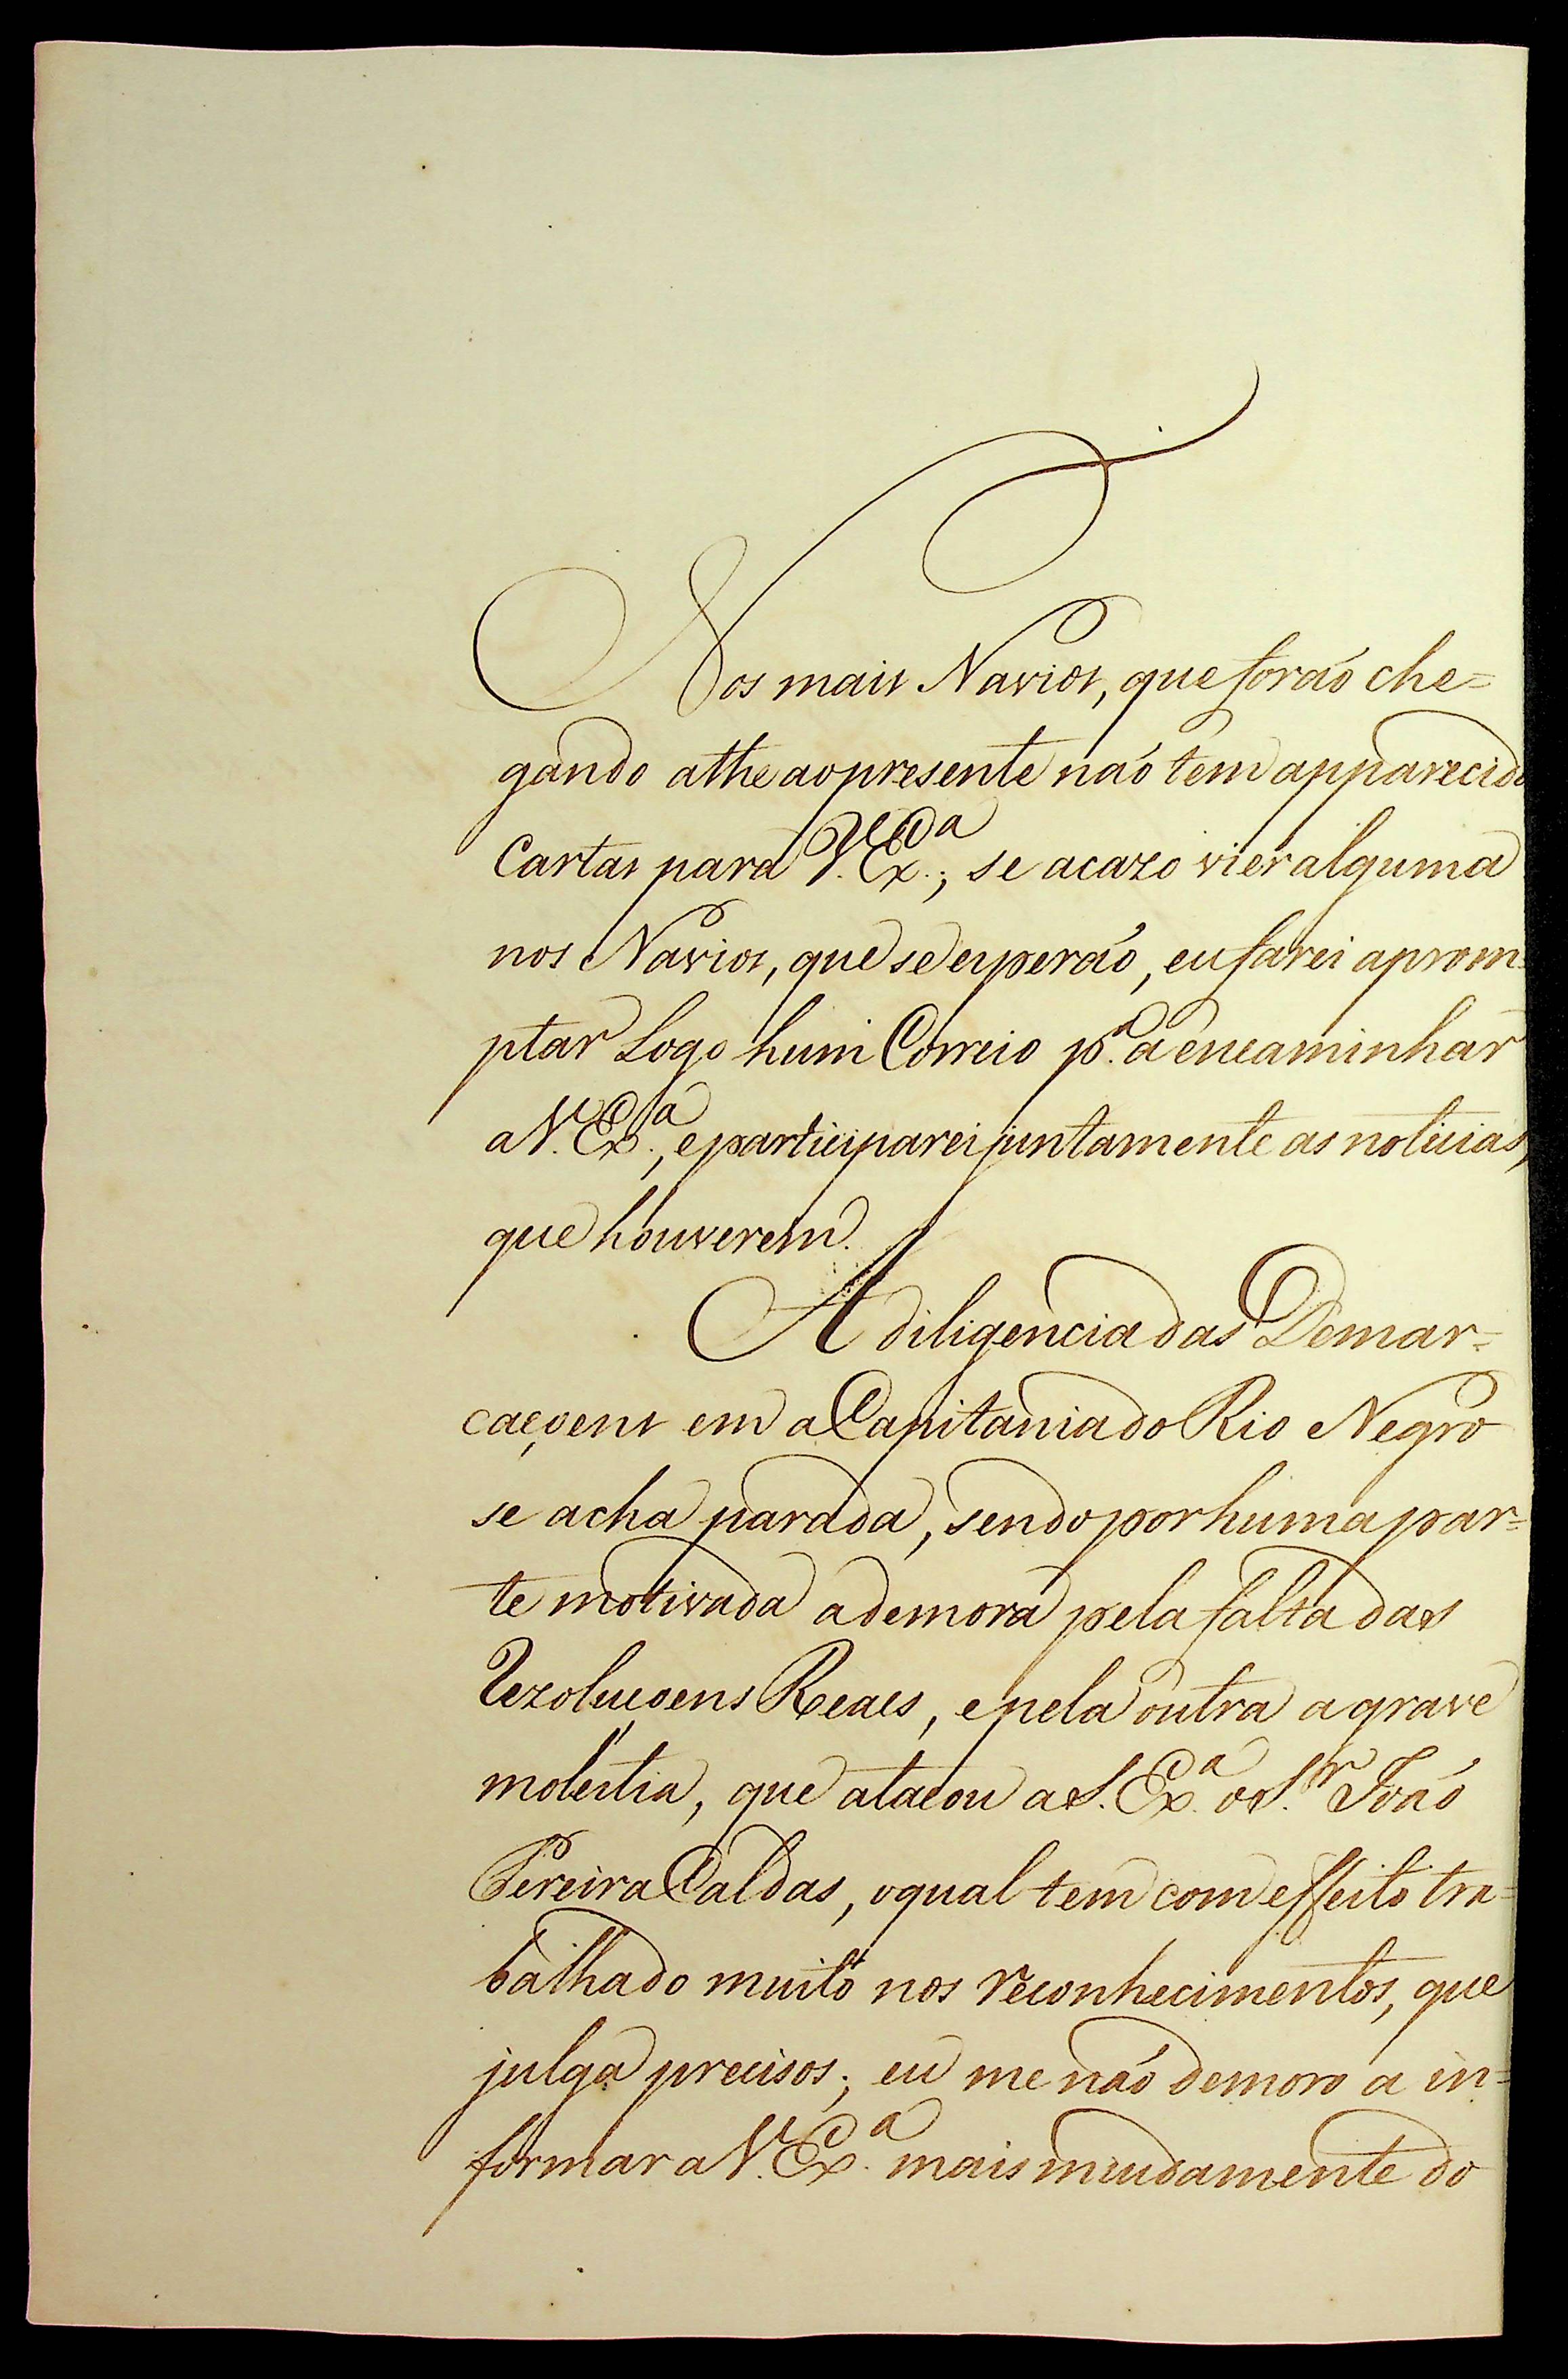 Nos mais Navios, que foraó che=
gando athe ao presente naó tem apparecido
Cartas para V. Ex.ª; se acazo vier alguma
nos Navios, que se esperaó, eu farei aprom=
ptar Logo hum Correio p.ª a encaminhar
a V. Ex.ª, e participarei juntamente as noticias,
que houverem.
A diligencia das Demar=
caçoens em a Capitania do Rio Negro
se acha parada, sendo por huma par=
te motivada a demora pela falta das
Rezoluçoens Reaes, e pela outra a grave
molestia, que atacou a S. Ex.ª o S.r Joaó
Pereira Caldas, o qual tem com effeito tra=
balhado muito nos reconhecimentos, que
julga precisos; eu me naó demoro a in=
formar a V. Ex.ª mais miudamente do